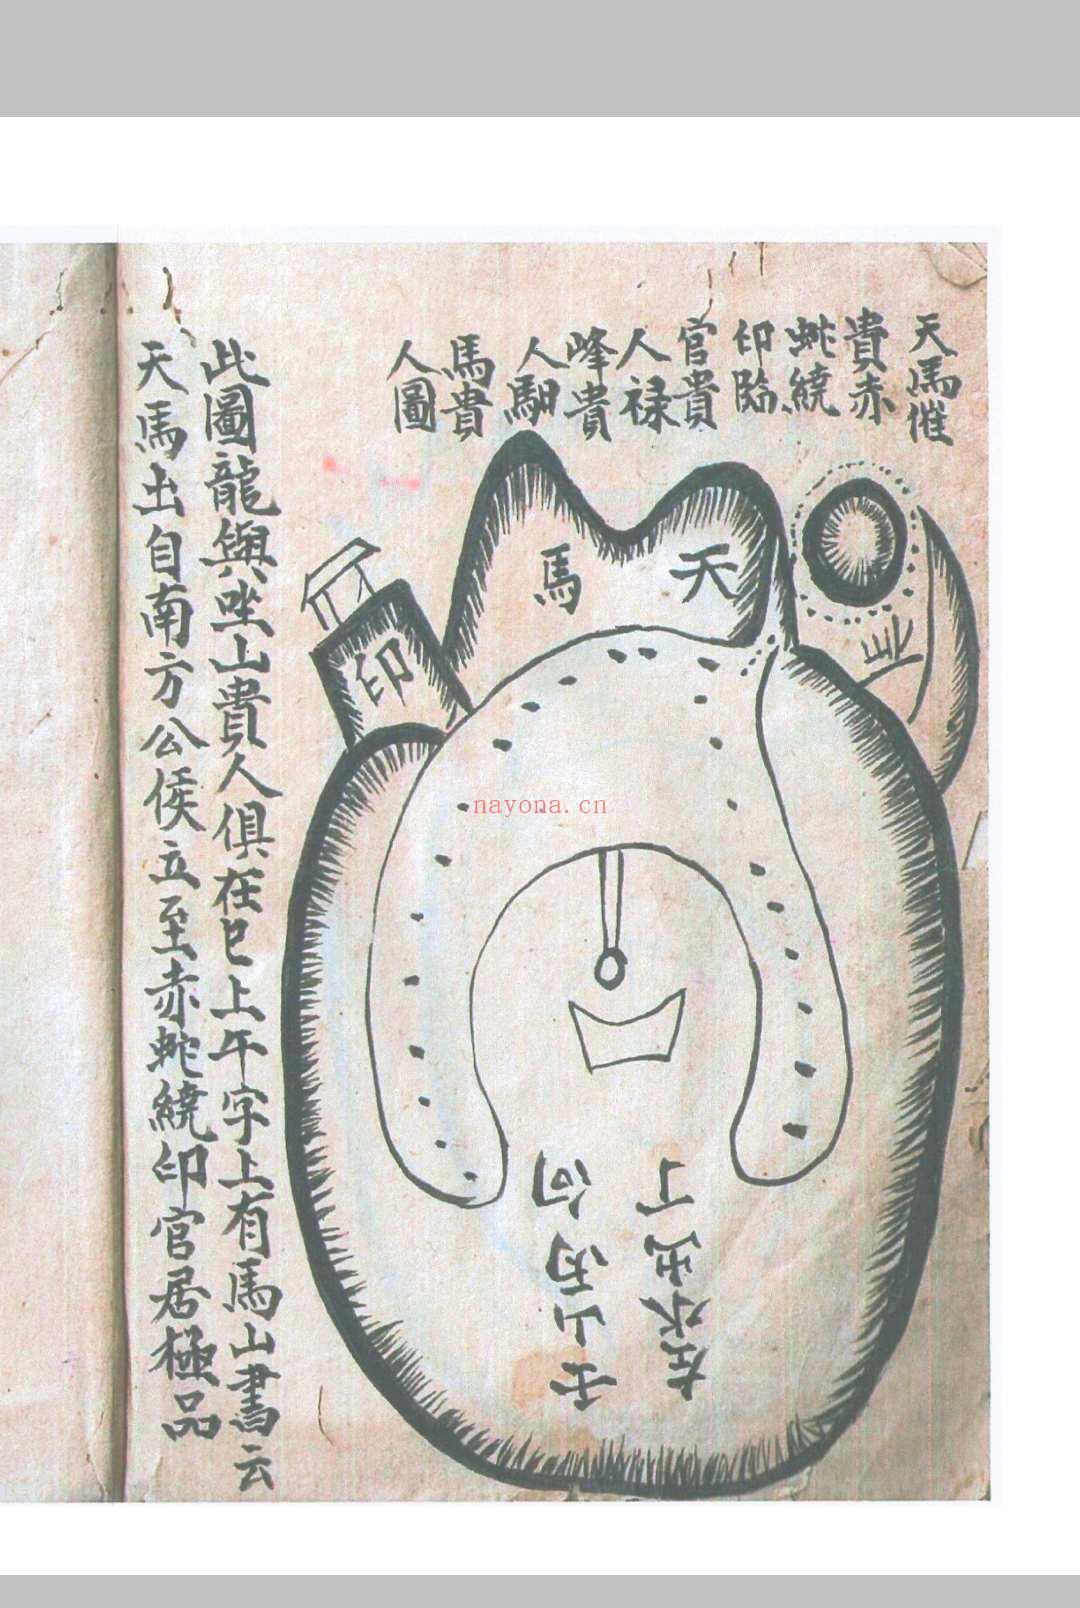 天馬催
貴赤
蛇繞
印臨
官貴
人禄
峰貴
人馹
馬貴
人圖
天
馬
印
nayona.cn
左水出丁
壬山丙向
此圖龍與坐山貴人俱在巳上午字上有馬山書云
天馬出自南方公侯立至赤蛇繞印官居極品